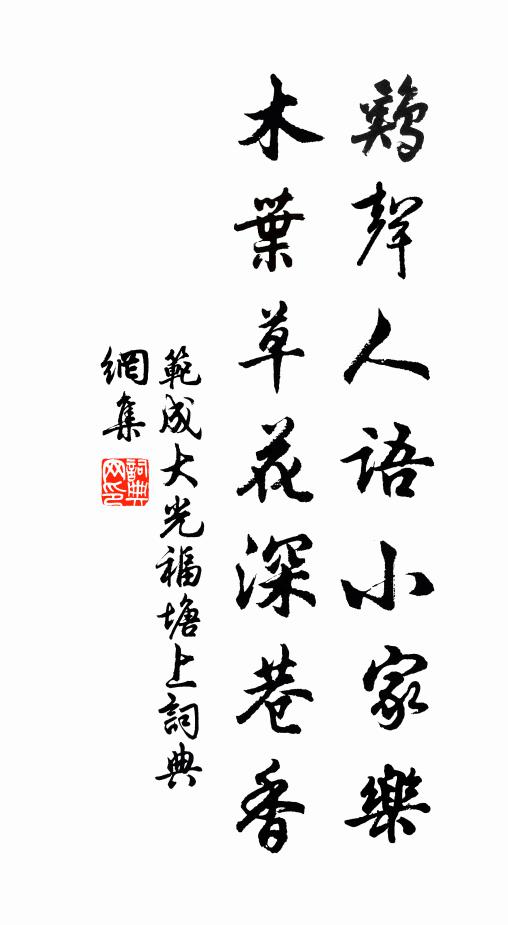 鷄聲人語小家樂
木葉草花深巷香
範成大光福塘上詞典
網集
詞典
网印